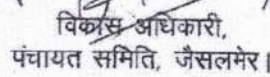 विकास अधिकारी,
पंचायत समिति, जैसलमेर।